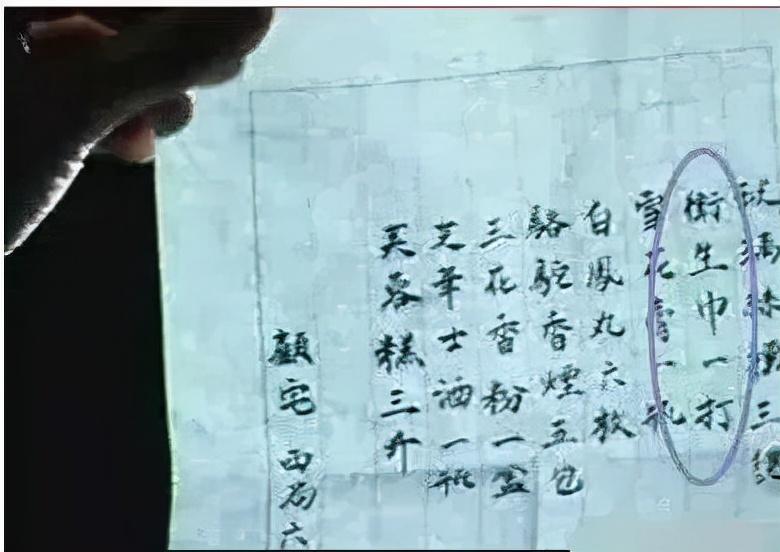 絲襪三
衛生巾一打
雪花膏一瓶
白鳳丸六
駱駝香煙五包
三花香粉一盒
芝華士酒一瓶
芙蓉糕三
顧宅 西局六